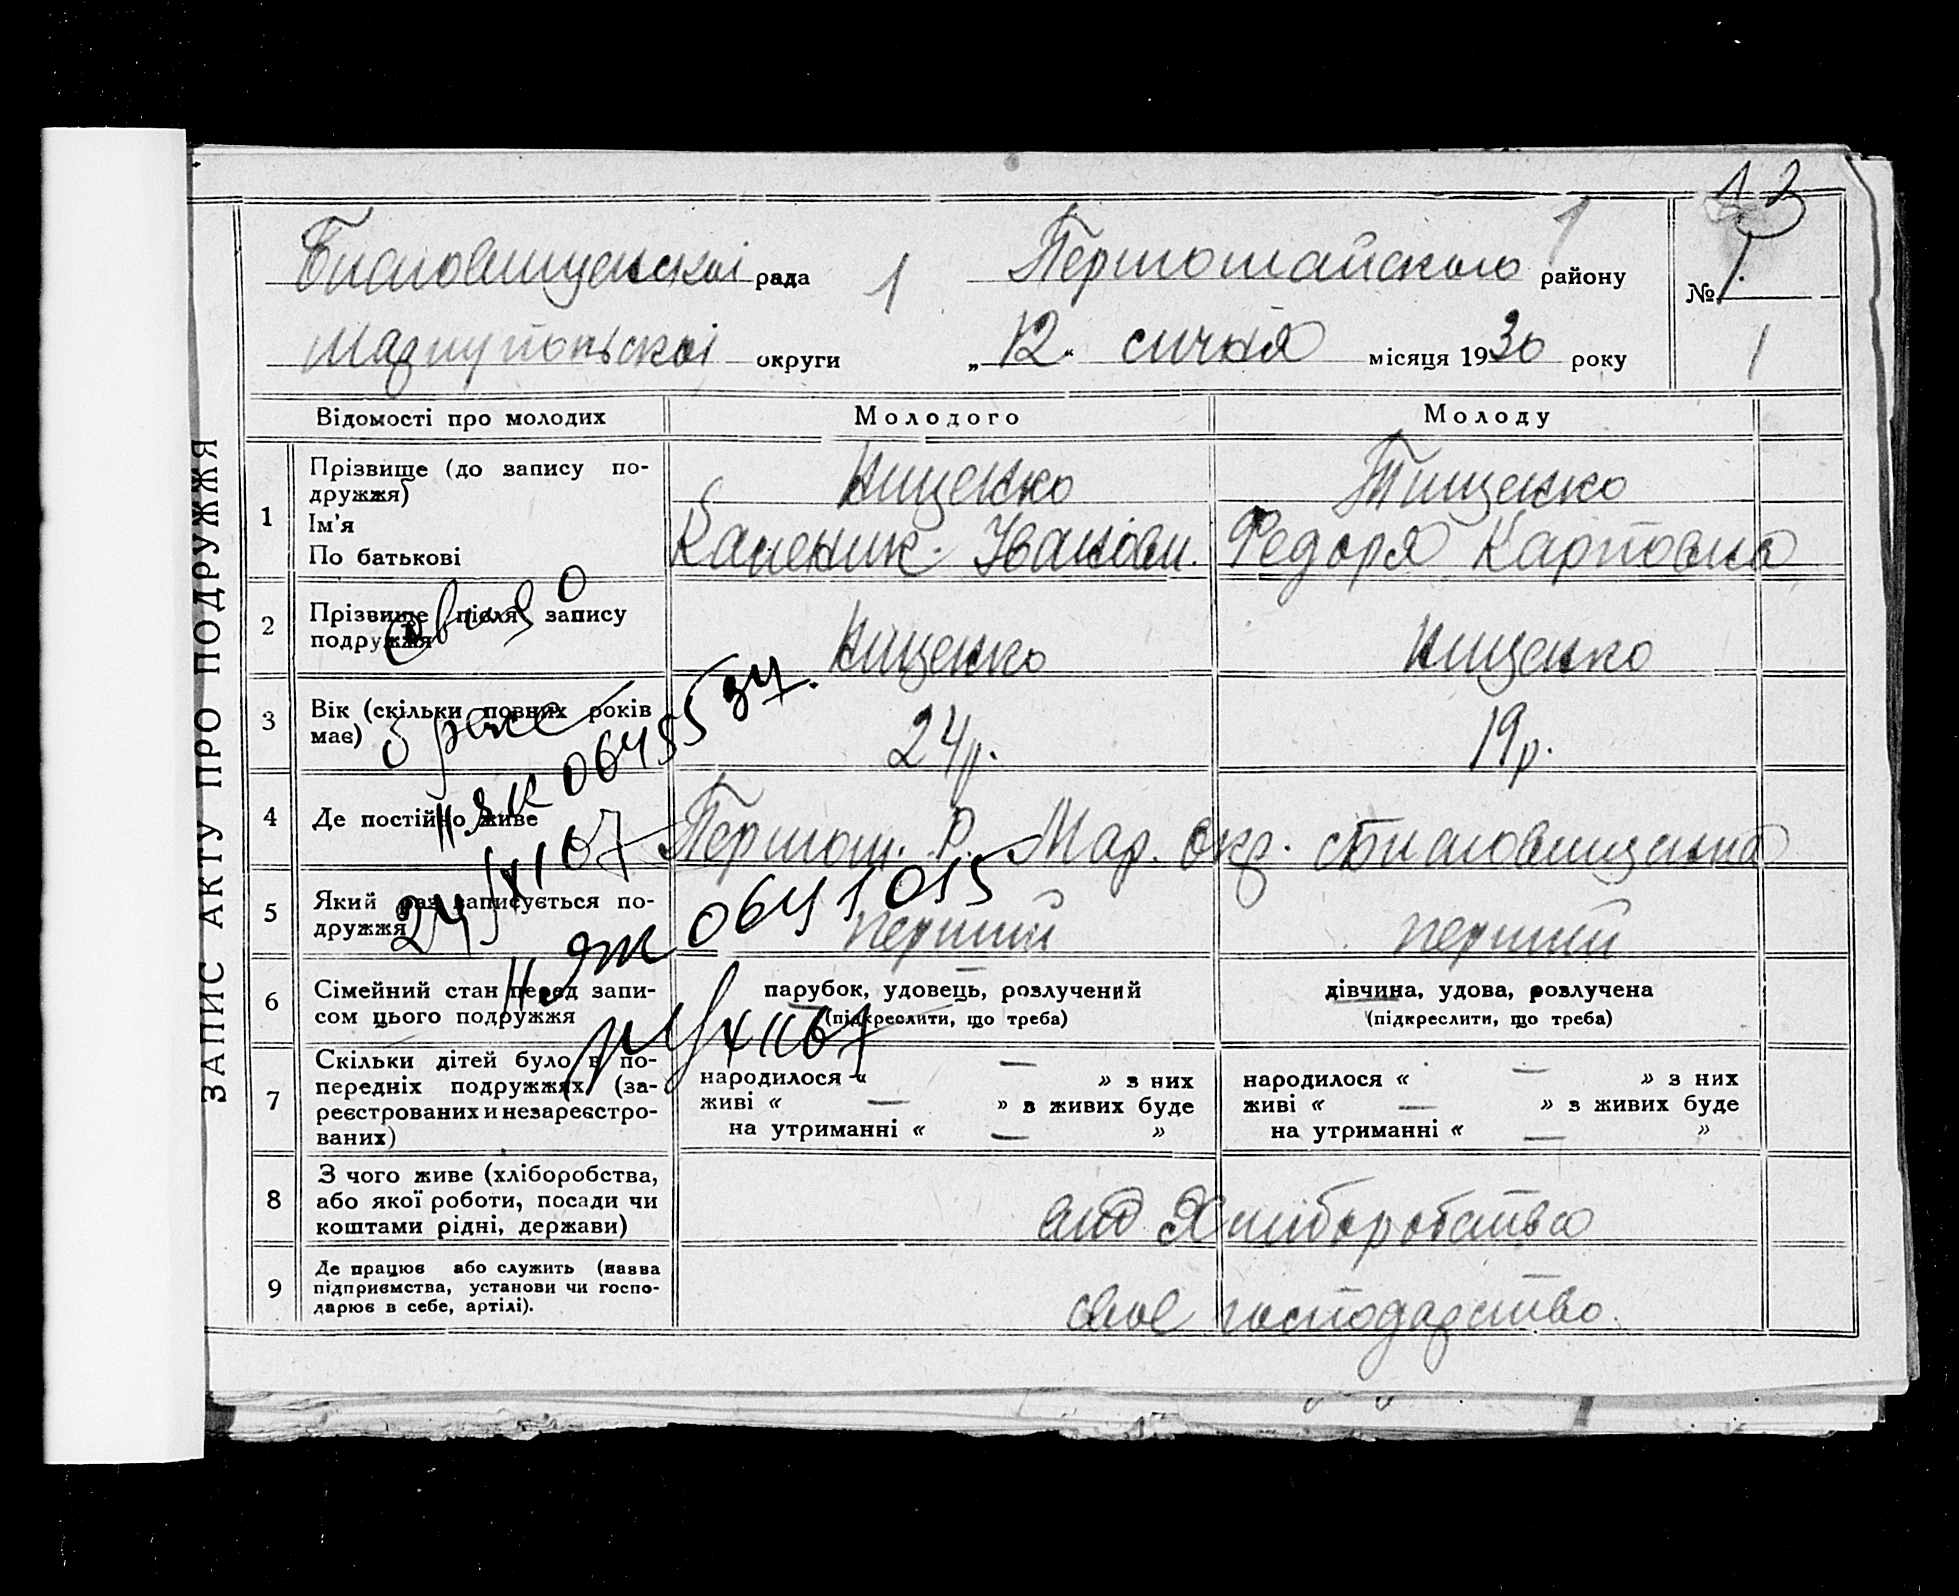 ЗАПИС АКТУ ПРО ПОДРУЖЖЯ
Благовищенскоі рада 1 Першомайского району 1
№ 1.
Маріупольскоі округи „ 12 " сичня місяця 1930 року
1
Відомості про молодих Молодого Молоду
1 Прізвище (до запису по-
дружжя)
Ім'я
По батькові
Нищенко Тищенко
Каленик Іванови. Федоря Карповна
2 Прізвище після запису
подружжя
Нищенко Нищенко
3 Вік (скільки повних років
має)
24 р. 19 р.
4 Де постійно живе
Першом. Р. Мар. окр. с Благовищенка
5 Який раз записується по-
дружжя
перший перший
6 Сімейний стан перед запи-
сом цього подружжя
парубок, удовець, розлучений
(підкреслити, що треба)
дівчина, удова, розлучена
(підкреслити, що треба)
7 Скільки дітей було в по-
передніх подружжях (за-
реєстрованих и незареєстро-
ваних)
народилося « — » з них
живі « — » з живих буде
на утриманні « — »
народилося « — » з них
живі « — » з живих буде
на утриманні « — »
8 З чого живе (хліборобства,
або якої роботи, посади чи
коштами рідні, держави)
від Хлиборобства
9 Де працює або служить (назва
підприємства, установи чи госпо-
дарює в себе, артілі).
свое господарство.
Свид о
браке
II ЯК 064955
24/XI 67
0641015
XII 67